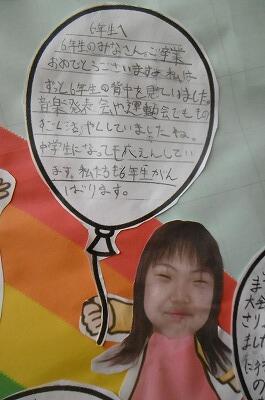 6年生へ
6年生のみなさん、ご卒業
おめでとうございます。私は
ずっと6年生の背中を見ていました。
音楽発表会や運動会でももの
すごく活やくしていましたね。
中学生になっても応えんしてい
ます。私たちも6年生がん
ばります。
ま
大会
さり
ました
に
の